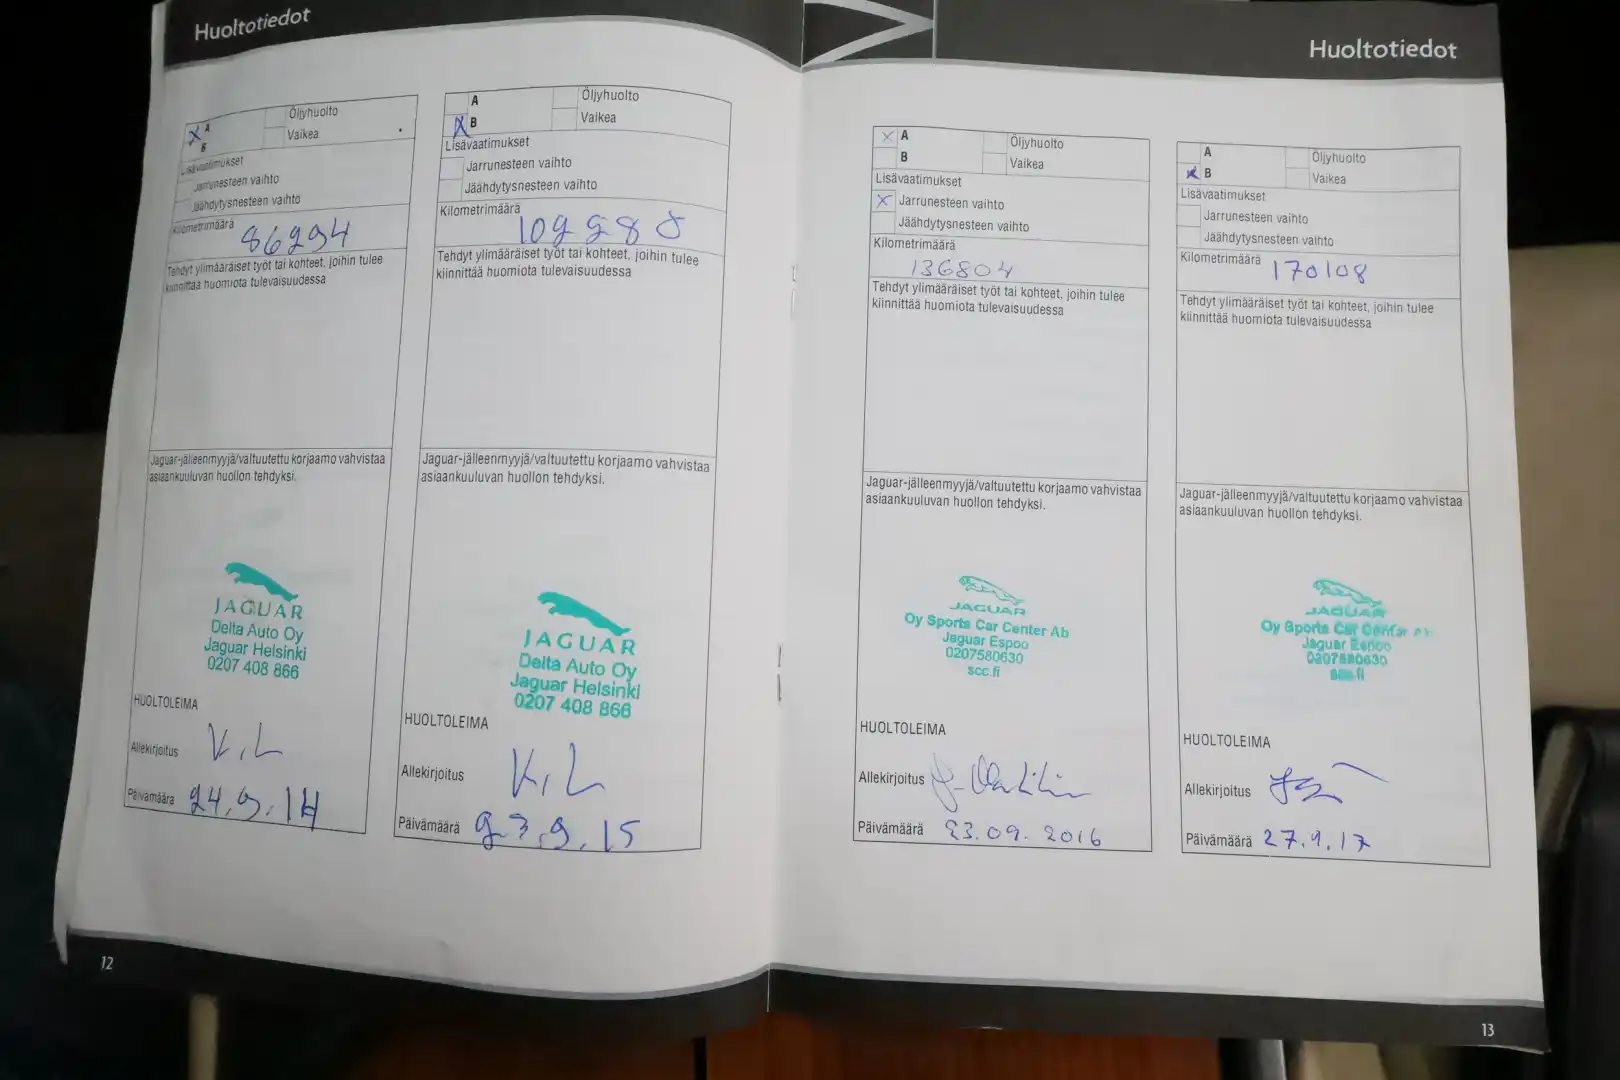 Huoltotiedot
A
B
Öljyhuolto
Vaikea
Lisävaatimukset
Jarrunesteen vaihto
Jäähdytysnesteen vaihto
Kilometrimäärä
86294
Tehdyt ylimääräiset työt tai kohteet, joihin tulee
kiinnittää huomiota tulevaisuudessa
Jaguar-jälleenmyyjä/valtuutettu korjaamo vahvistaa
asiaankuuluvan huollon tehdyksi.
JAGUAR
Delta Auto Oy
Jaguar Helsinki
0207 408 866
HUOLTOLEIMA
Allekirjoitus K.L
Päivämäärä 24.9.14
A
B
Öljyhuolto
Vaikea
Lisävaatimukset
Jarrunesteen vaihto
Jäähdytysnesteen vaihto
Kilometrimäärä
Tehdyt ylimääräiset työt tai kohteet, joihin tulee
kiinnittää huomiota tulevaisuudessa
Jaguar-jälleenmyyjä/valtuutettu korjaamo vahvistaa
asiaankuuluvan huollon tehdyksi.
JAGUAR
Delta Auto Oy
Jaguar Helsinki
0207 408 866
HUOLTOLEIMA
Allekirjoitus K.L
Päivämäärä 23.9.15
12
Huoltotiedot
X A
B
Öljyhuolto
Vaikea
Lisävaatimukset
X Jarrunesteen vaihto
Jäähdytysnesteen vaihto
Kilometrimäärä
136804
Tehdyt ylimääräiset työt tai kohteet, joihin tulee
kiinnittää huomiota tulevaisuudessa
Jaguar-jälleenmyyjä/valtuutettu korjaamo vahvistaa
asiaankuuluvan huollon tehdyksi.
JAGUAR
Oy Sports Car Center Ab
Jaguar Espoo
0207580630
scc.fi
HUOLTOLEIMA
Allekirjoitus
Päivämäärä 23.09.2016
A
B
Öljyhuolto
Vaikea
Lisävaatimukset
Jarrunesteen vaihto
Jäähdytysnesteen vaihto
Kilometrimäärä 170108
Tehdyt ylimääräiset työt tai kohteet, joihin tulee
kiinnittää huomiota tulevaisuudessa
Jaguar-jälleenmyyjä/valtuutettu korjaamo vahvistaa
asiaankuuluvan huollon tehdyksi.
JAGUAR
Oy Sports Car Center Ab
Jaguar Espoo
0207580630
scc.fi
HUOLTOLEIMA
Allekirjoitus
Päivämäärä 27.9.17
13